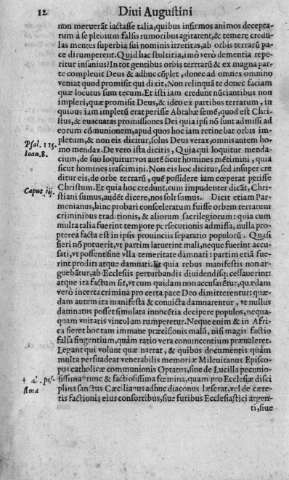 12 Diui Augustini
non meruerāt iactasse talia, quibus infirmos animos decepta-
rum à se plebium falsis rumoribus agitarent, & temere credu-
las mentes superbia sui nominis irretitas, ab orbis terrarū pa-
ce dirumperent. Quid hac stultitia, imò verò dementia repe-
ritur insanius? In tot gentibus orbis terrarū & ex magna par-
te compleuit Deus & adhuc cōplet, donec ad omnes omnino
veniat quod promisit qui dixit: Non relinquā te donec faciam
quæ locutus sum tecum. Et isti iam credunt nō tantùm non
impleri, quæ promisit Deus, & ideo ex partibus terrarum, in
quibus iam impletū erat perisse Abrahæ semē, quod est Chri-
stus, & euacuatas promissiones Dei quia ipsi nō sunt admissi ad
eorum cōmunionem, apud quos hoc iam retinebat orbis im-
pletum, & non eis dicitur, solus Deus verax, omnis autem ho-
mo mendax. De vero ista dicitis, Quia qui loquitur menda-
cium, de suo loquitur: vos autē sicut homines mētimini, quia
sicut homines irascimini. Non eis hoc dicitur: sed insuper cre-
ditur eis, de orbe terrarū, quē possidere iam cœperat perisse
Christum. Et quia hoc credunt, cùm impudenter dicāt, Chri-
stiani sumus, audēt dicere, nos soli sumus. Dicit etiam Par-
menianus, hinc probari consceleratum fuisse orbem terrarum
criminibus traditionis, & aliorum sacrilegiorum: quia cum
multa talia fuerint tempore persecutionis admissa, nulla pro-
pterea facta est in ipsis prouinciis separatio populorū. Quasi
fieri nō potuerit, vt partim laterent mali, neque fuerint accu-
sati, vt possent sine vlla temeritate damnari: partim etiā fue-
rint proditi atque damnati.
guebātur, ab Ecclesiis perturbandis diuidendisq; cessauerint:
atque ita factum sit, vt cum quidam non accusarētur, quædam
verò incerta crimina pro certa pace Deo dimitterentur: quæ-
dam autem ita manifesta & conuicta damnarentur, vt nullus
damnatus posset simulata innocētia decipere populos, nequa-
quam vnitatis vinculum rumperetur. Neque enim & in Afri-
ca fieret hoc tam immane præcisionis malū, nisi magis factio
falsa fingentium, quàm ratio vera conuincentium præualeret.
Legant qui volunt quæ narrat, & quibus documentis quàm
multa persuadeat venerabilis memoriæ Mileuitanus Episco-
pus catholicæ communionis Optatus, siue de Lucilla pecunio-
sissima tunc & factiosissima fœmina, quam pro Ecclesiæ disci-
plina sanctus Cæcilianus adhuc diaconus læserat, vel de cæte-
ris factionis eius consortibus, siue furibus Ecclesiastici argen-
ti, siue
Psal. 115.
Ioan. 8.
Caput iij.